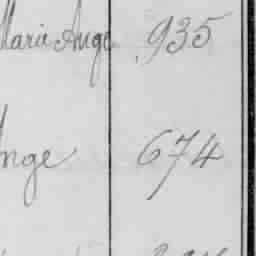 Marie Ange 935
nge 674